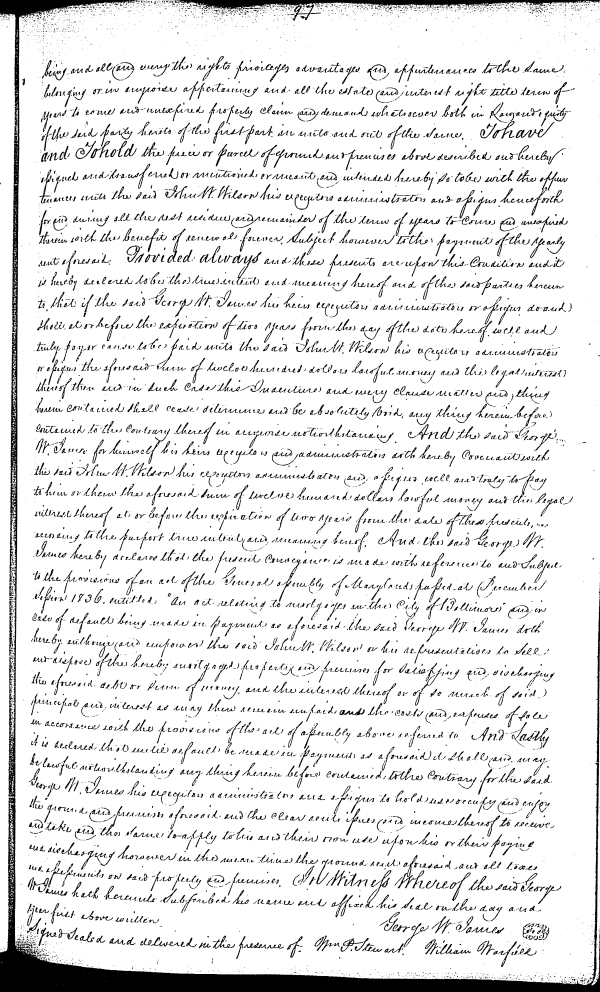 97
being and all and every the rights privileges advantages and appurtenances to the same
belonging or in anywise appertaining and all the estate and interest right title term of
years to come and unexpired property claim and demand whatsoever both in Law and equity
of the said party hereto of the first part in unto and out of the same. To have
and To hold the piece or parcel of ground and premises above described and hereby
assigned and transferred or mentioned or meant and intended hereby so to be with the appur
tenances unto the said John W. Wilson his executors administrators and assigns henceforth
for and during all the rest residue and remainder of the term of years to come and unexpired
therein with the benefit of renewal forever, Subject however to the payment of the yearly
rent aforesaid. Provided always and these presents are upon this Condition and it
is hereby declared to be the true intent and meaning hereof and of the said parties herein
to, that if the said George W. James his heirs executors administrators or assigns do and
shall at or before the expiration of two years from the day of the date hereof well and
truly pay or cause to be paid unto the said John W. Wilson his executors administrators
or assigns the aforesaid sum of twelve hundred dollars lawful money and the legal interest
thereof then and in such case this Indenture and every clause matter and thing
herein contained shall cease determine and be absolutely Void, any thing herein before
contained to the contrary thereof in anywise notwithstanding. And the said George
W. James for himself his heirs executors and administrators doth hereby Covenant with
the said John W. Wilson his executors administrators and assigns well and truly to pay
to him or them the aforesaid sum of twelve hundred dollars lawful money and the legal
interest thereof at or before the expiration of two years from the date of these presents,
according to the purport true intent and meaning hereof. And the said George W.
James hereby declares that the present Conveyance is made with reference to and Subject
to the provisions of an act of the General assembly of Maryland passed at December
Session 1836 entitled, "An act relating to mortgages in the City of Baltimore" and in
case of default being made in payment as aforesaid the said George W. James doth
hereby authorize and empower the said John W. Wilson or his representatives to Sell
and dispose of the hereby mortgaged property and premises for satisfying and discharging
the aforesaid debt or sum of money and the interest thereof or of so much of said
principal and interest as may then remain unpaid and the costs and expenses of sale
in accordance with the provisions of the act of assembly above referred to. And Lastly
it is declared that until default be made in payment as aforesaid it shall and may
be lawful notwithstanding any thing herein before contained to the Contrary for the said
George W. James his executors administrators and assigns to hold use occupy and enjoy
the ground and premises aforesaid and the clear rents issues and income thereof to receive
and take and the same to apply to his and their own use upon his or their paying
and discharging however in the mean time the ground rent aforesaid and all taxes
and assessments on said property and premises. In Witness Whereof the said George
W. James hath hereunto Subscribed his name and affixed his seal on the day and
year first above written.
George W. James
Signed Sealed and delivered in the presence of. Wm P. Stewart. William Warfield